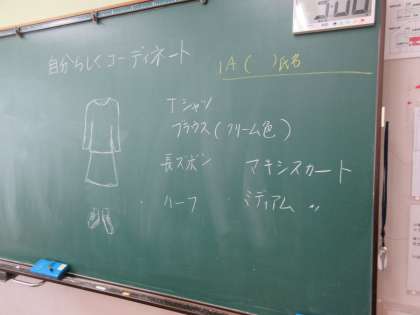 自分らしくコーディネート
1A( )氏名
Tシャツ
ブラウス(クリーム色)
長ズボン マキシスカート
・ハーフ ミディアム 〃